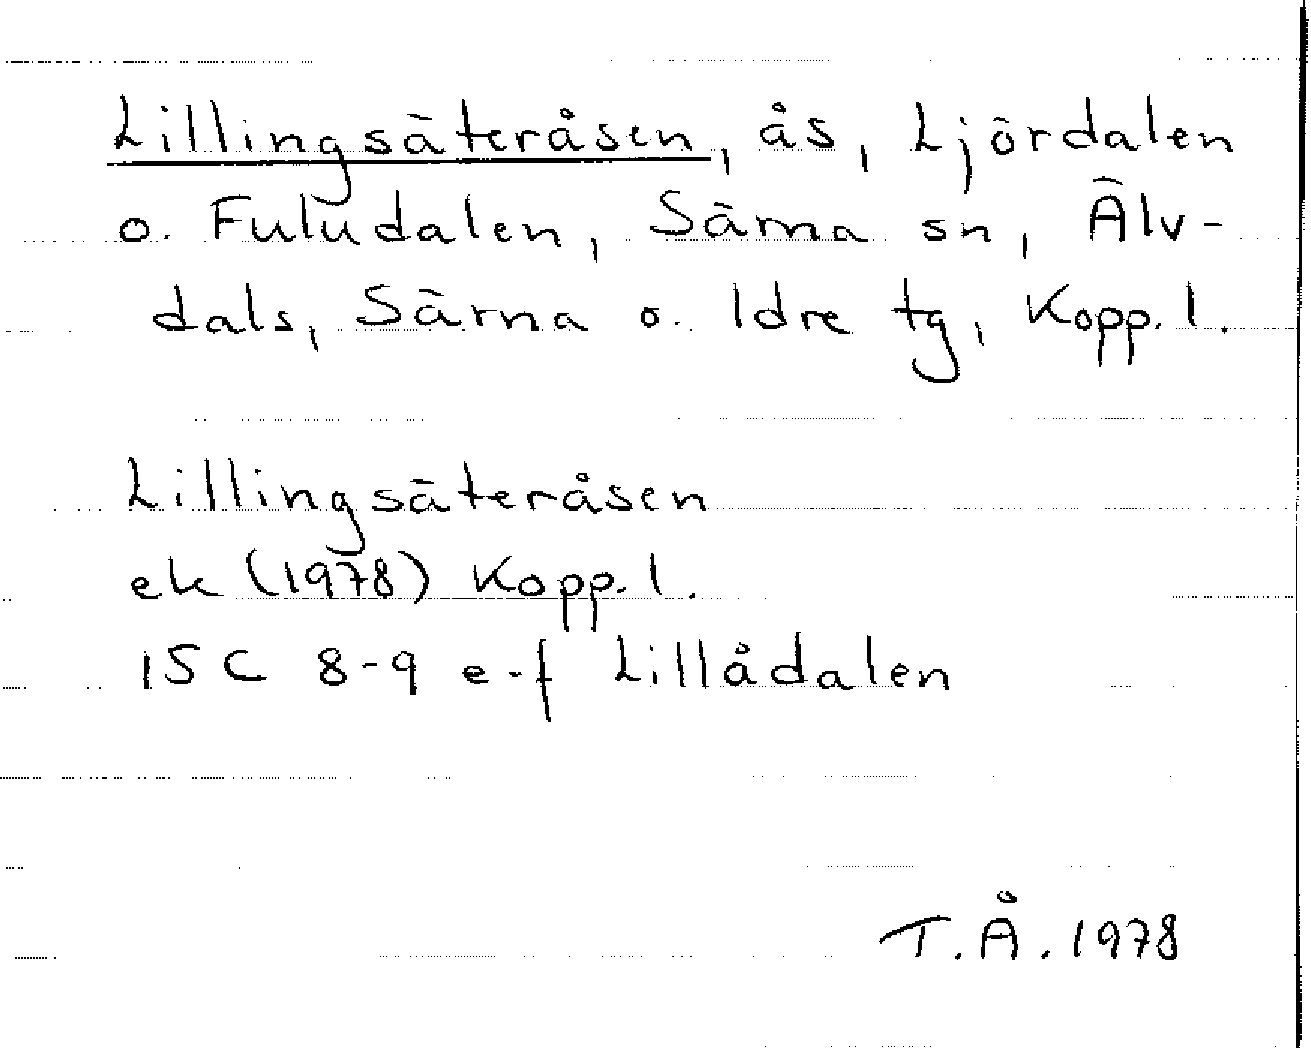 Lillingsäteråsen, ås, Ljördalen
o. Fuludalen, Särna sn, Älv-
dals, Särna o. Idre tg, Kopp. l.
Lillingsäteråsen
ek (1978) Kopp. l.
15 C 8-9 e-f Lillådalen
T. Å. 1978